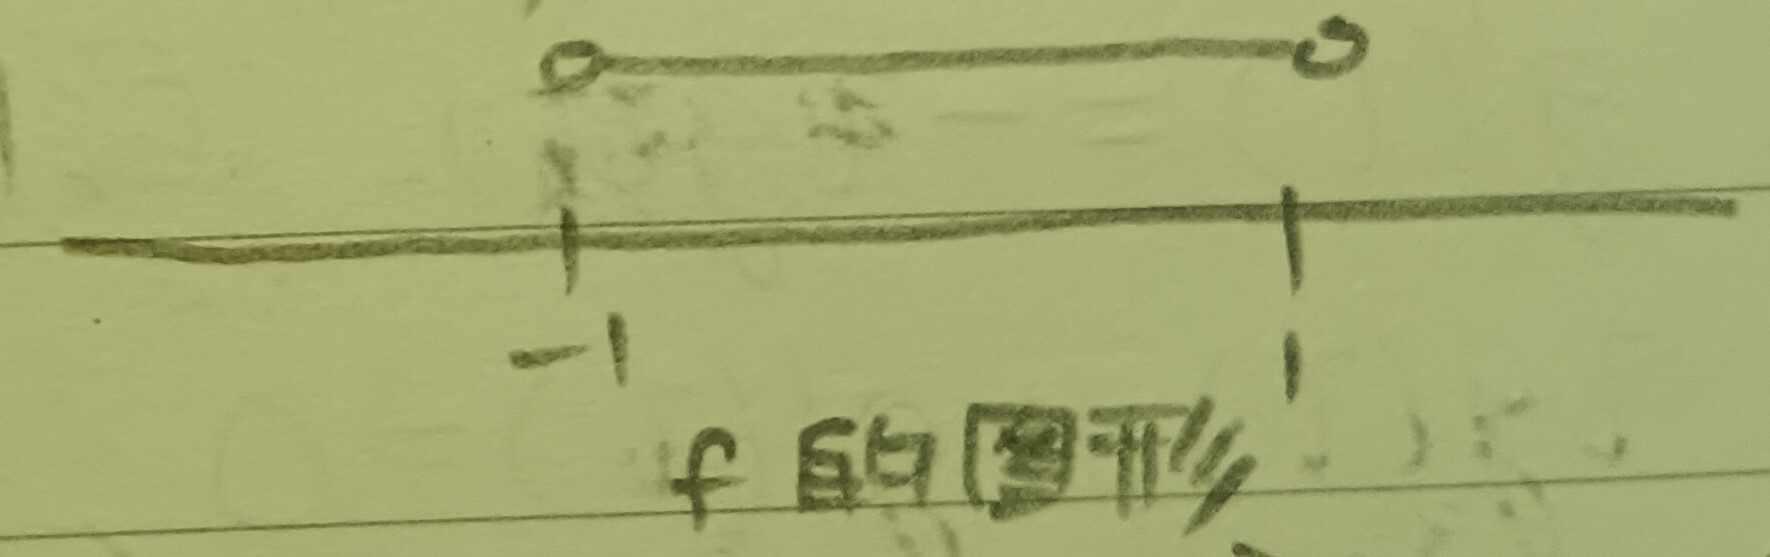 -1 1
f 的图形